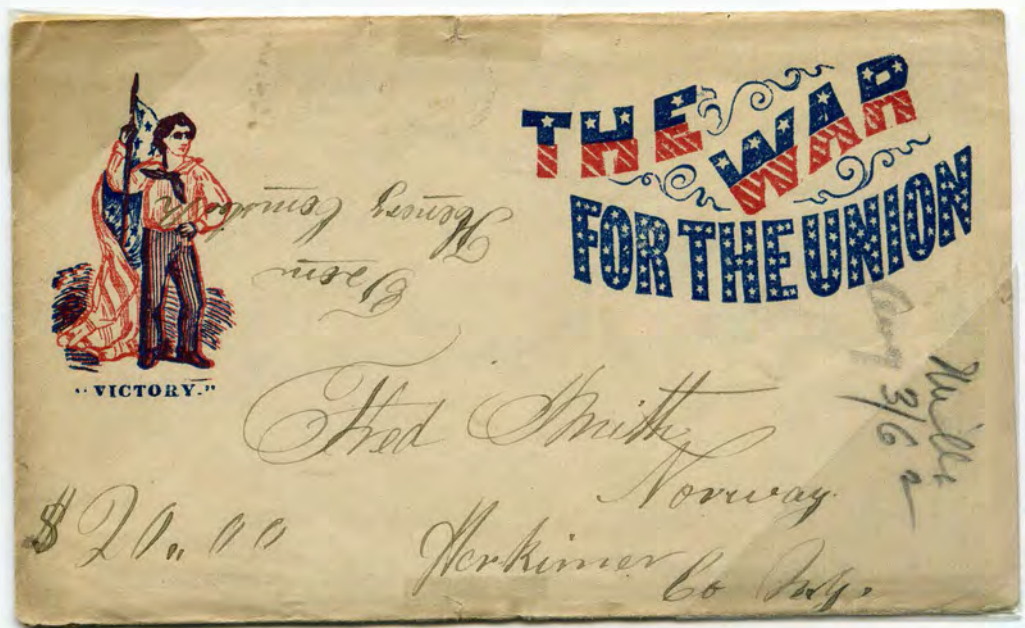 THE WAR
FOR THE UNION
"VICTORY."
From
Henery
Fred Smith
Norway
Herkimer
Co N.Y.
$20.00
Aug 3/62